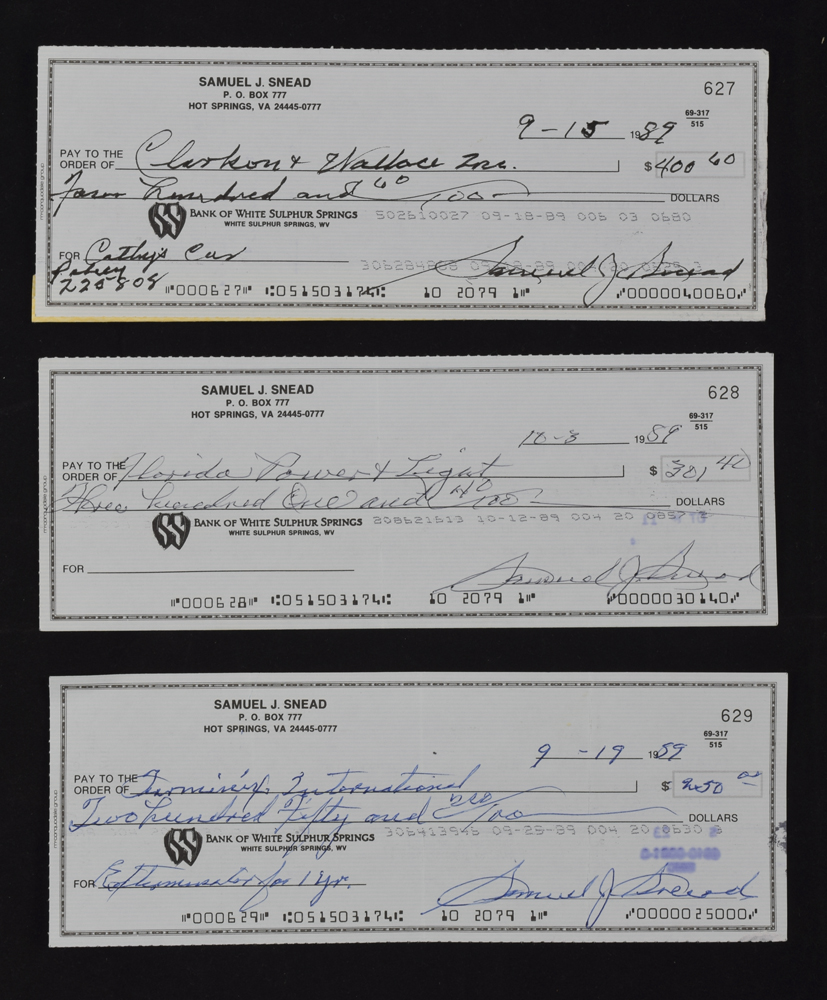 SAMUEL J. SNEAD
P. O. BOX 777
HOT SPRINGS, VA 24445-0777
627
69-317
515
9-15 1989
PAY TO THE
ORDER OF Clarkson & Wallace Inc. $ 400 60
Four hundred and 60/100 DOLLARS
BANK OF WHITE SULPHUR SPRINGS
WHITE SULPHUR SPRINGS, WV
502610027 09-18-89 006 03 0680
FOR Cathy's Car
225808
Samuel J. Snead
⑈000627⑈ ⑆051503174⑆ 10 2079 1⑈ ⑈0000040060⑈
SAMUEL J. SNEAD
P. O. BOX 777
HOT SPRINGS, VA 24445-0777
628
69-317
515
10-3 1989
PAY TO THE
ORDER OF Florida Power & Light $ 301 40
Three hundred One and 40/100 DOLLARS
BANK OF WHITE SULPHUR SPRINGS
WHITE SULPHUR SPRINGS, WV
208621513 10-12-89 004 20 0857
FOR
Samuel J. Snead
⑈000628⑈ ⑆051503174⑆ 10 2079 1⑈ ⑈0000030140⑈
SAMUEL J. SNEAD
P. O. BOX 777
HOT SPRINGS, VA 24445-0777
629
69-317
515
9-19 1989
PAY TO THE
ORDER OF Terminix International $ 250
Two hundred Fifty and 100 DOLLARS
BANK OF WHITE SULPHUR SPRINGS
WHITE SULPHUR SPRINGS, WV
306413946 09-25-89 004 20 0630
FOR Exterminator for 1 yr.
Samuel J Snead
⑈000629⑈ ⑆051503174⑆ 10 2079 1⑈ ⑈0000025000⑈